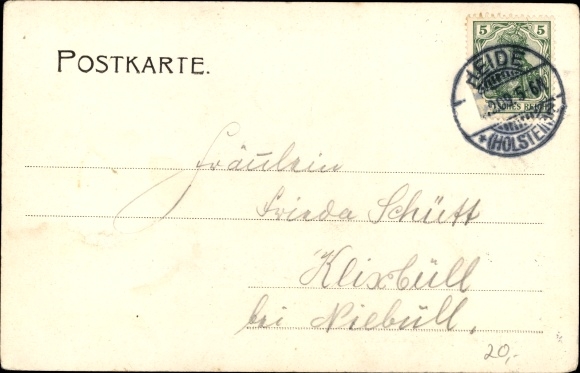 POSTKARTE.
5 5
HEIDE
5-6N
DEUTSCHES REICH
* (HOLSTEIN)
Fräulein
Frieda Schütt
Klixbüll
bei Niebüll.
20,-